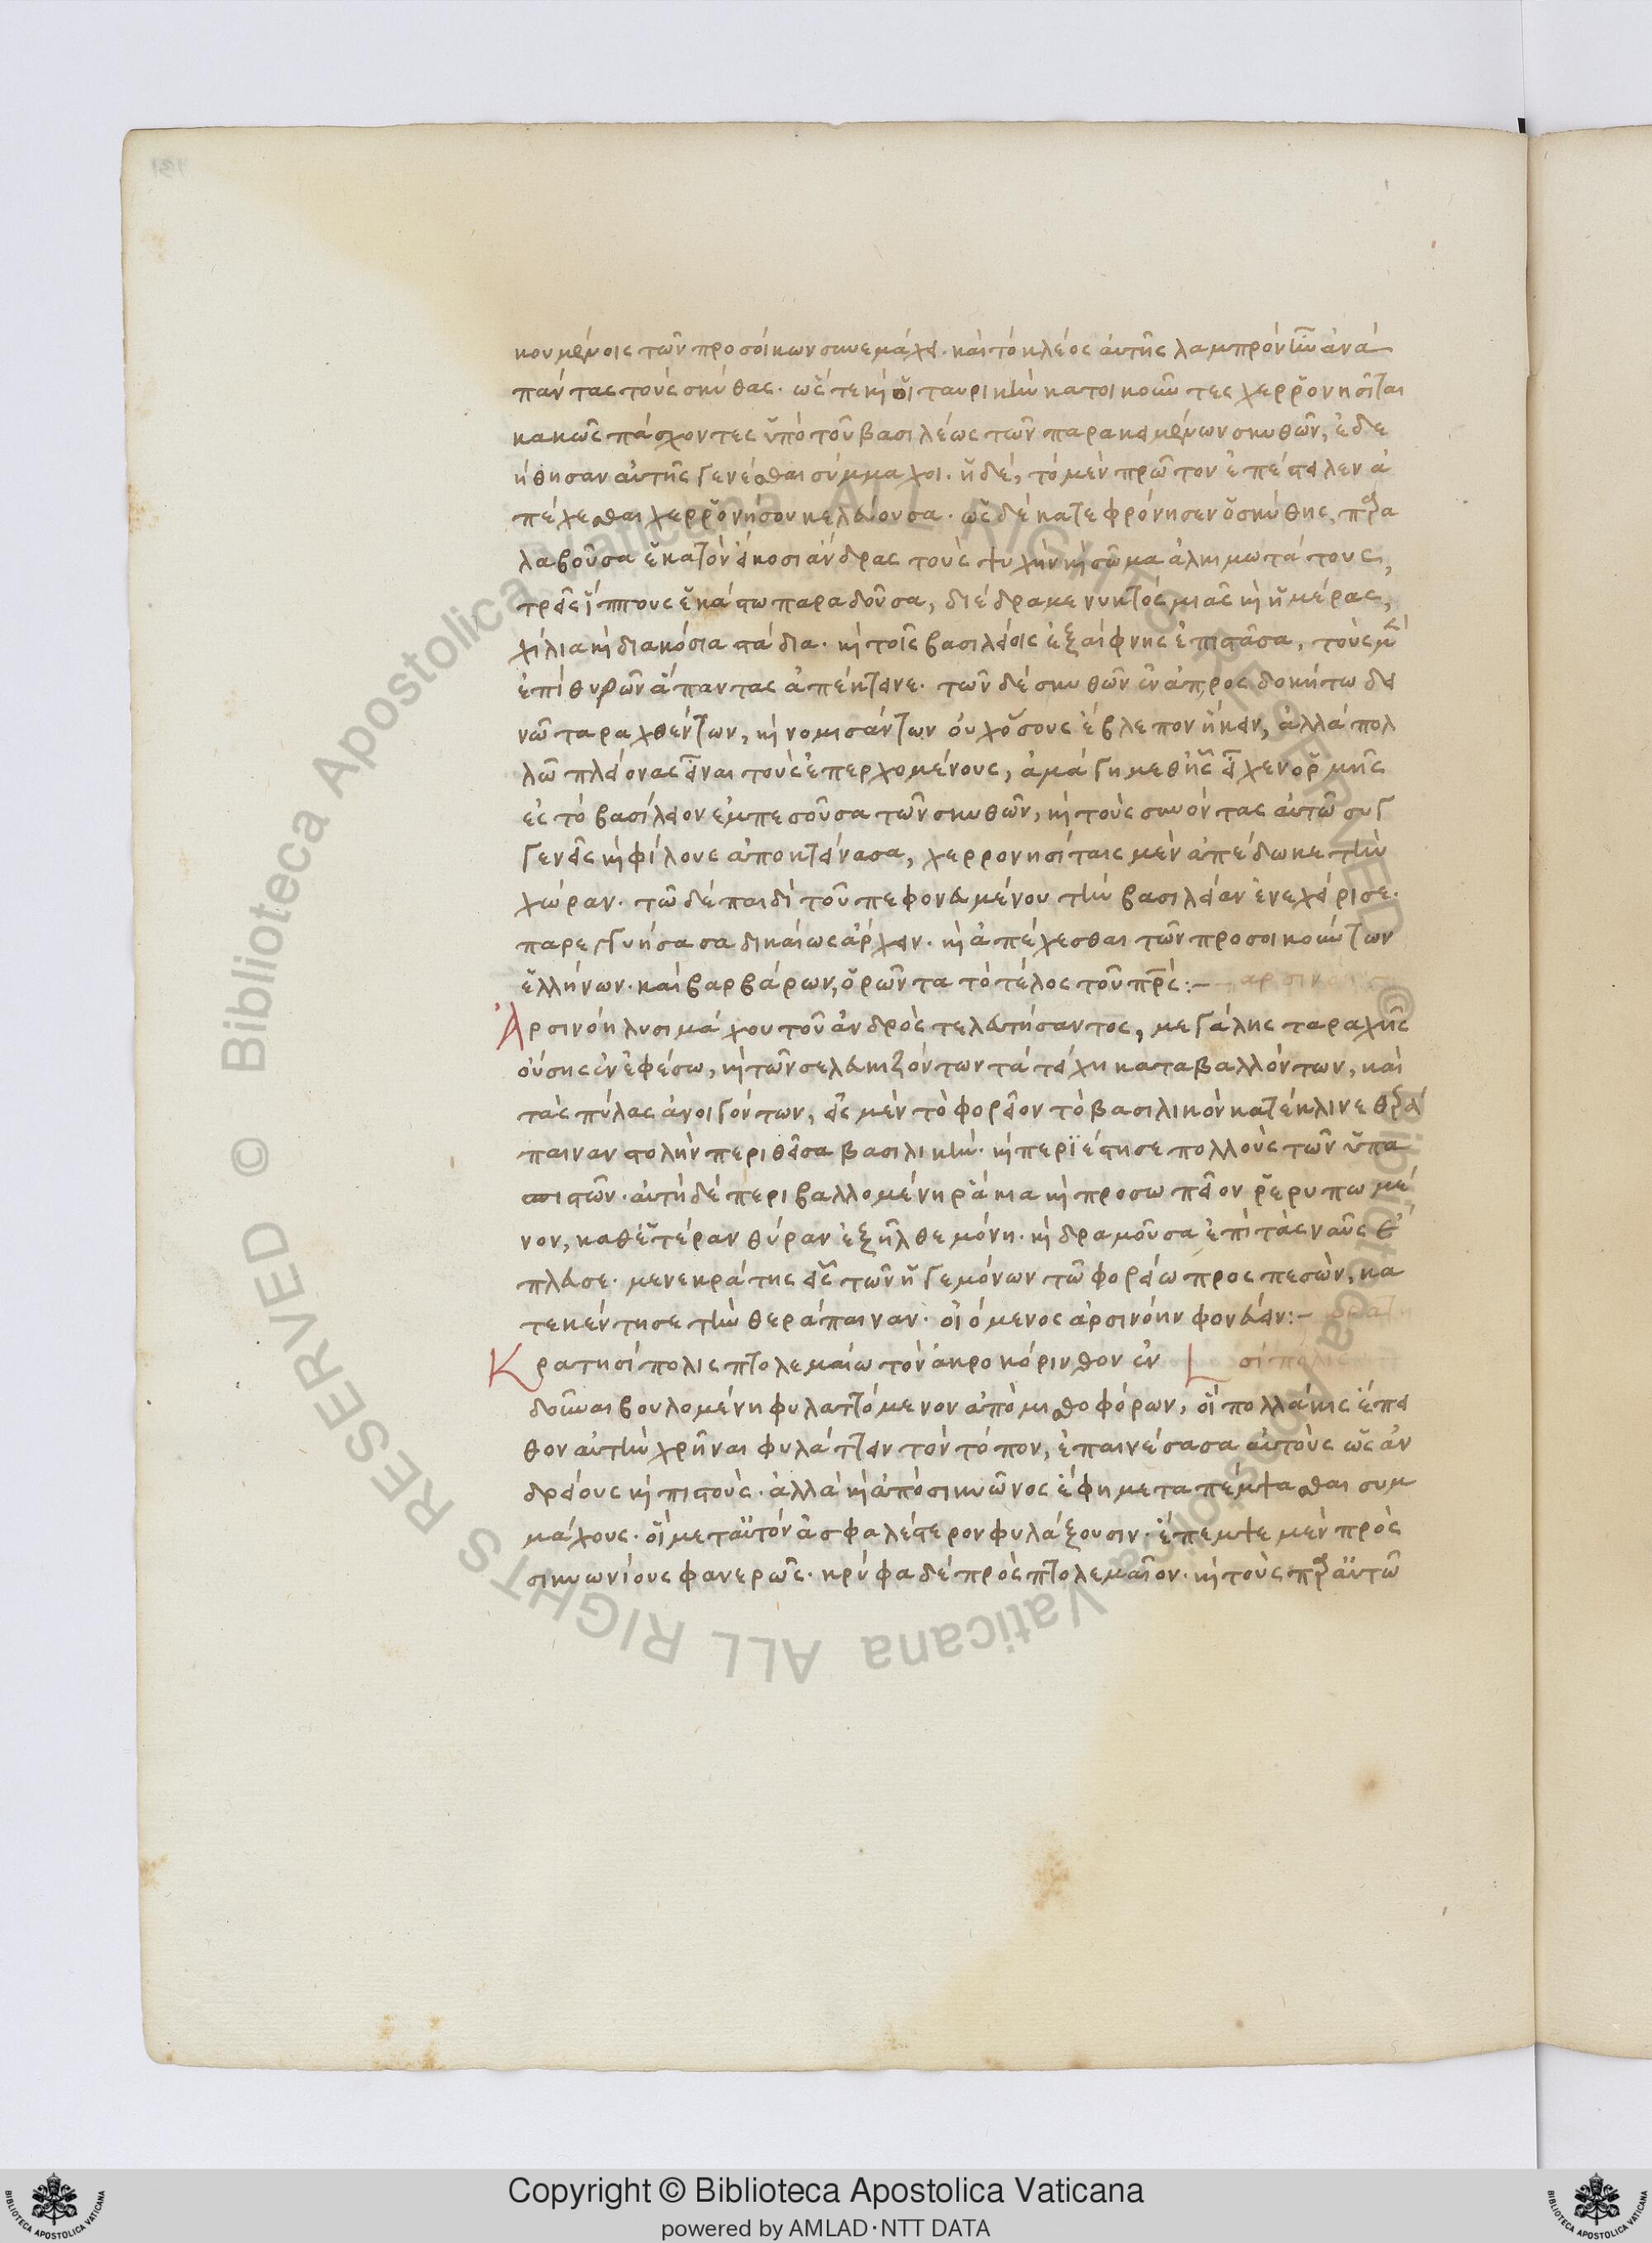 κουμένοις τῶν προσοίκων συνεμάχει· καὶ τὸ κλέος αὐτῆς λαμπρὸν ἦν ἀνὰ
πάντας τοὺς σκύθας· ὥστε καὶ οἱ ταυρικὴν κατοικοῦντες χερρονησῖται
κακῶς πάσχοντες ὑπὸ τοῦ βασιλέως τῶν παρακειμένων σκυθῶν, ἐδε
ήθησαν αὐτῆς γενέσθαι σύμμαχοι· ἡ δὲ, τὸ μὲν πρῶτον ἐπέστειλεν ἀ
πέχεσθαι χερρονήσου κελεύουσα· ὡς δὲ κατεφρόνησεν ὁ σκύθης,
λαβοῦσα ἑκατὸν εἴκοσι ἄνδρας τοὺς ψυχὴν καὶ σῶμα ἀλκιμωτάτους,
τρεῖς ἵππους ἑκάστω παραδοῦσα, διέδραμε νυκτὸς μιᾶς καὶ ἡμέρας,
χίλια καὶ διακόσια στάδια· καὶ τοῖς βασιλείοις ἐξαίφνης ἐπιστᾶσα, τοὺς μὲν
ἐπὶ θυρῶν ἅπαντας ἀπέκτεινε· τῶν δὲ σκυθῶν ἐν ἀπροσδοκήτω δει
νῶ ταραχθέντων, καὶ νομισάντων οὐχ ὅσους ἔβλεπον ἥκειν, ἀλλὰ πολ
λῶ πλείονας εἶναι τοὺς ἐπερχομένους, ἀμάγη μεθ' ἧς εἶχεν ὁρμῆς
ἐς τὸ βασίλειον ἐμπεσοῦσα τῶν σκυθῶν, καὶ τοὺς συνόντας αὐτῶ συγ
γενεῖς καὶ φίλους ἀποκτείνασα, χερρονησίταις μὲν ἀπέδωκε τὴν
χώραν· τῶ δὲ παιδὶ τοῦ πεφονευμένου τὴν βασιλείαν ἐνεχείρισε·
παρεγγυήσασα δικαίως ἄρχειν· καὶ ἀπέχεσθαι τῶν προσοικούντων
ἑλλήνων· καὶ βαρβάρων, ὁρῶντα τὸ τέλος τοῦ πρς:–
Ἀρσινόη λυσιμάχου τοῦ ἀνδρὸς τελευτήσαντος, μεγάλης ταραχῆς
οὔσης ἐν ἐφέσω, καὶ τῶν σελευκιζόντων τὰ τείχη καταβαλλόντων, καὶ
τὰς πύλας ἀνοιγόντων, εἰς μὲν τὸ φορεῖον τὸ βασιλικὸν κατέκλινε θερά
παιναν στολὴν περιθεῖσα βασιλικὴν· καὶ περιέστησε πολλοὺς τῶν ὑπα
σπιστῶν· αὐτὴ δὲ περιβαλλομένη ῥάκια καὶ προσωπεῖον ῥερυπωμέ
νον, καθ' ἑτέραν θύραν ἐξῆλθε μόνη· καὶ δραμοῦσα ἐπὶ τὰς ναῦς ἐ
πλευσε· μενεκράτης εἷς τῶν ἡγεμόνων τῶ φορείω προσπεσὼν, κα
τεκέντησε τὴν θεράπαιναν· οἰόμενος ἀρσινόην φονεύειν:–
Κρατησίπολις πτολεμαίω τὸν ἀκροκόρινθον ἐν
δοῦναι βουλομένη φυλαττόμενον ἀπὸ μισθοφόρων, οἳ πολλάκις ἔπει
θον αὐτὴν χρῆναι φυλάττειν τὸν τόπον, ἐπαινέσασα αὐτοὺς ὡς ἀν
δρείους καὶ πιστοὺς· ἀλλὰ καὶ ἀπὸ σικυῶνος ἔφη μεταπέμψασθαι συμ
μάχους· οἳ μετ' αὐτὸν ἀσφαλέστερον φυλάξουσιν· ἔπεμψε μὲν πρὸς
σικυωνίους φανερῶς· κρύφα δὲ πρὸς πτολεμαῖον· καὶ τοὺς παρ' αὐτῶ